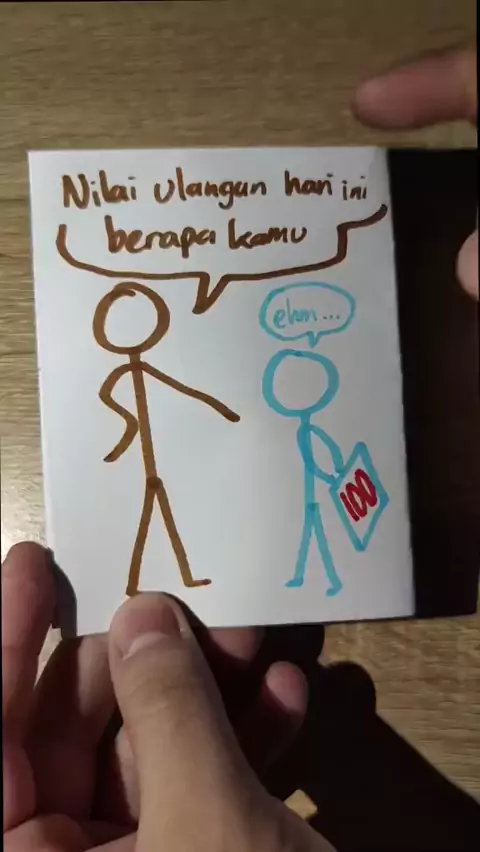 Nilai ulangan hari ini
berapa kamu
ehm...
100